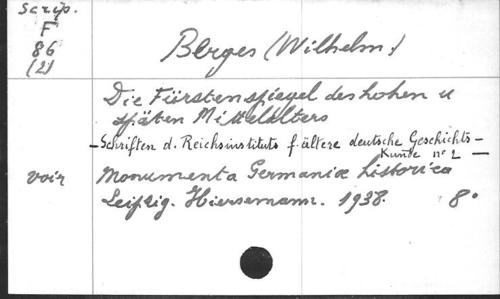 Scrip.
F
86
(2)
Berges (Wilhelm.)
Die Fürstenspiegel des hohen u
späten Mittelalters
— Schriften d. Reichsinstituts f. ältere deutsche Geschichts-
Kunde n° 2 —
voir Monumenta Germaniæ historica
Leipzig. Hiersemann. 1938. 8°